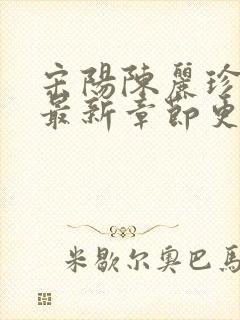 宋陽陳麗珍
最新章節更
米歇尔奥巴馬